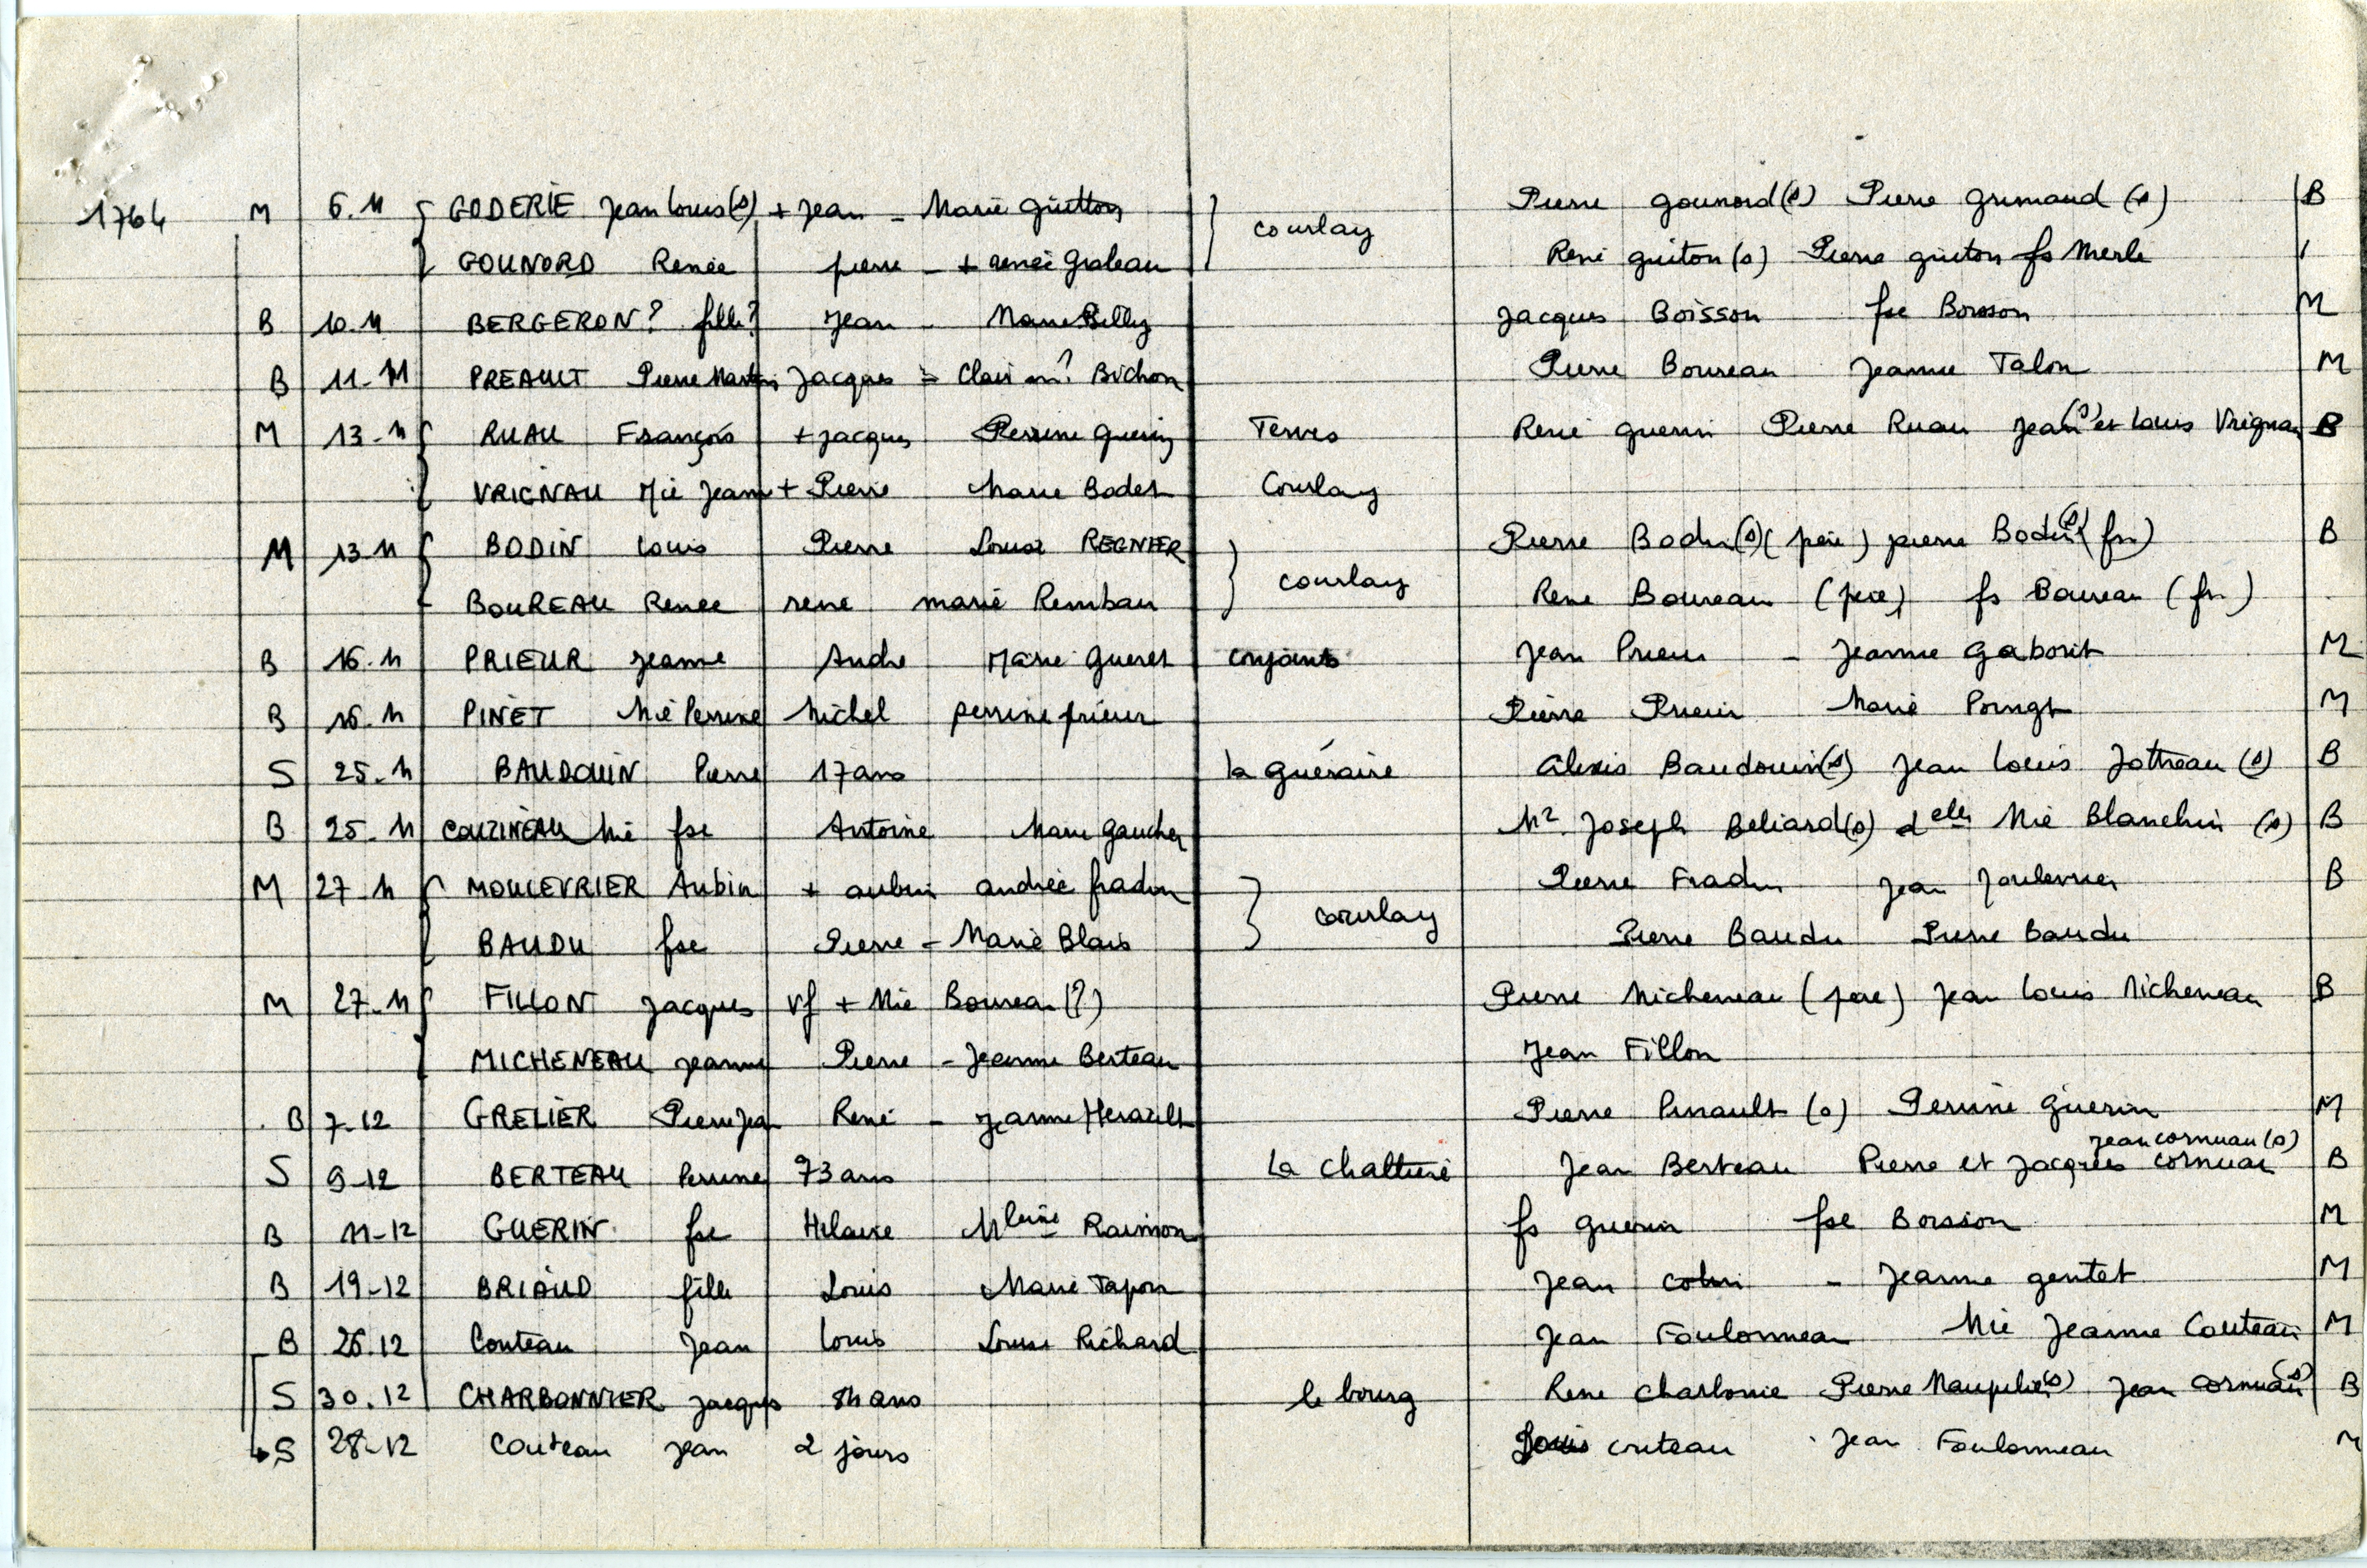 1764 M 6.11 { GODERIE Jean Louis (s) + Jean - Marie guitton } courlay Pierre gounord (s) Pierre Grimaud (s) B
{ GOUNORD Renée pierre - + renée Graleau René guiton (s) Pierre guiton fs Merle
B 10.11 BERGERON? fille? Jean - Marie Billy Jacques Boisson fse Boisson M
B 11-11 PREAULT Pierre Martin Jacques = Bichon Pierre Boureau Jeanne Talon M
M 13-11 { RUAU François + Jacques Perrine guerin Terves René guerin Pierre Ruau Jean (s) et Louis Vrignau B
{ VRIGNAU Mie Jeanne + Pierre Marie Bodet Courlay
M 13-11 { BODIN Louis Pierre Louise REGNIER } courlay Pierre Bodin (s) (père) pierre Bodin (s) (fr) B
{ BOUREAU Renée rene marie Rembau Rene Boureau (père) fs Boureau (fr)
B 16-11 PRIEUR Jeanne Andre Marie Gueret conjoints Jean Prieur - Jeanne Gaborit M
B 16-11 PINET Mie Perrine Michel perrine prieur Pierre Prieur Marie M
S 25-11 BAUDOUIN Pierre 17 ans la guéraire Alexis Baudouin (s) Jean Louis Jottreau (s) B
B 25-11 COUZINEAU Mie fse Antoine Marie Gaucher Mr. Joseph Beliard (s) delle Mie Blanchin (s) B
M 27-11 { MOULEVRIER Aubin + aubin andrée fradin } courlay Pierre Fradin Jean B
{ BAUDU fse Pierre - Marie Blais Pierre Baudu Pierre Baudu
M 27-11 { FILLON Jacques vf + Mie Boureau (?) Pierre Micheneau (père) Jean Louis Micheneau B
{ MICHENEAU Jeanne Pierre - Jeanne Berteau Jean Fillon
B 7-12 GRELIER Pierre Jean René - Jeanne Herault Pierre Pinault (s) Perrine Guerin M
S 9-12 BERTEAU Perrine 73 ans La Jean Berteau Pierre et Jacques cornuau jean cornuau (s) B
B 11-12 GUERIN fse Hilaire Mleine Raimon fs guerin fse Boission M
B 19-12 BRIAUD fille Louis Marie Tapon Jean colin - Jeanne gentet M
B 26.12 Couteau Jean Louis Louise Richard Jean Foulonneau Mie Jeanne Couteau M
S 30.12 CHARBONNIER Jacques ans le bourg Rene Charbonie Pierre Maupilier (s) Jean cornuau (s) B
S 28-12 Couteau Jean 2 jours Louis couteau Jean Foulonneau M